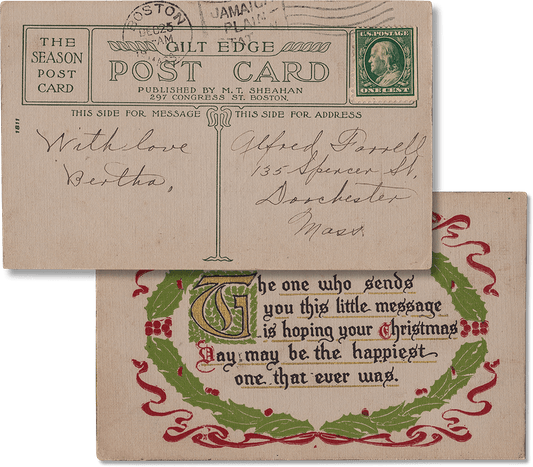 BOSTON
DEC 25
AM
JAMAICA
PLAIN
STA.
THE
SEASON
POST
CARD
GILT EDGE
POST CARD
PUBLISHED BY M. T. SHEAHAN
297 CONGRESS ST. BOSTON.
U.S. POSTAGE
ONE CENT
THIS SIDE FOR MESSAGE
THIS SIDE FOR ADDRESS
1811
With love
Bertha,
Alfred Farrell
135 Spencer St.
Dorchester
Mass.
The one who sends
you this little message
is hoping your Christmas
Day may be the happiest
one that ever was.